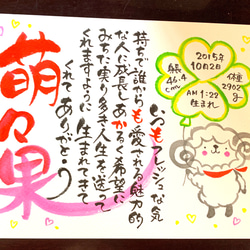 萌々果
いつもフレッシュな気
持ちで誰からも愛される魅力的
な人に成長しあかるく希望に
みちた実り多き人生を送って
くれますように 生まれてきて
くれてありがとう
2015年
10月2日
身長
46.4
cm
体重
2902
g
AM 1:22
生まれ